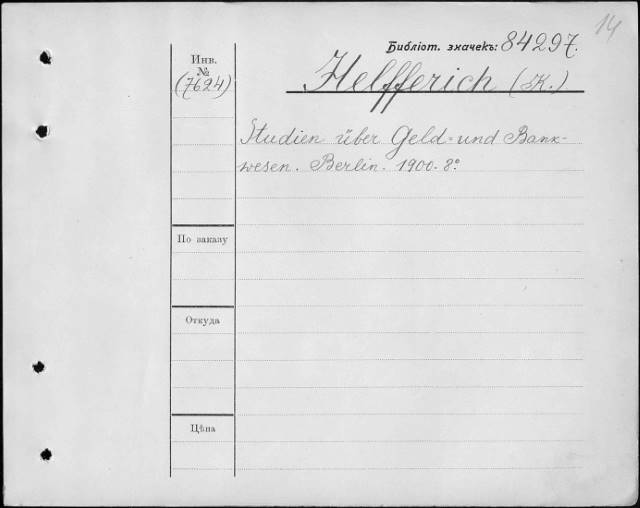 14
Библіот. значекъ: 84297.
Инв.
№
(7624)
Helfferich (K.)
Studien über Geld- und Bank-
wesen. Berlin. 1900. 8°
По заказу
Откуда
Цѣна